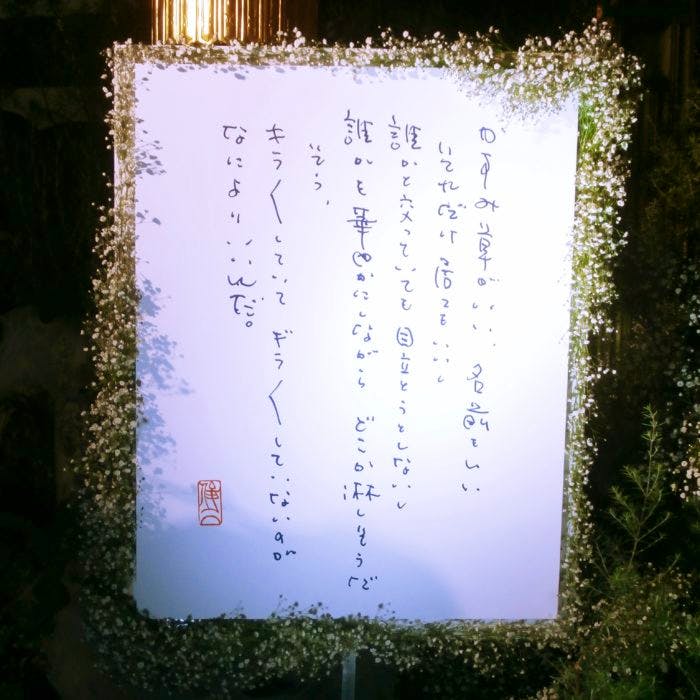 かすみ草がいい、名前もいい
いてれだけ居てもいいし
誰かと交っていても目立とうとしないし
誰かを華やかにしながら どこか淋しそうで
いてう、
キラ〱していて ギラ〱していないのが
なによりいいんだ。